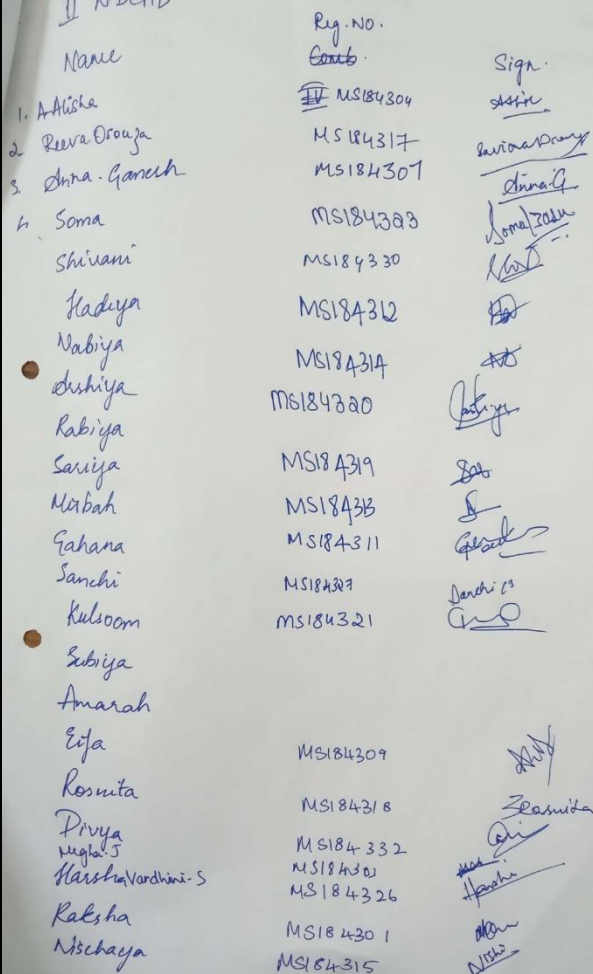 II
Reg. No.
Name Comb. Sign.
1. A Alisha IV MS184304
2. Reeva Dsouza MS184317
3. Anna. Ganesh MS184307 Anna.G
4. Soma MS184323 Soma Basu
Shivani MS184330
Hadiya MS184312
Nabiya MS184314
Arshiya MS184320
Rabiya
Sariya MS184319 Sar
Misbah MS184313
Gahana MS184311
Sanchi MS184327 Sanchi
Kulsoom MS184321
Subiya
Amarah
Eifa MS184309
Rosmita MS184318
Divya MS184332
Megha.J MS184303
HarshaVardhini-S MS184326 Harshi
Raksha MS184301
Nischaya MS184315 Nisho